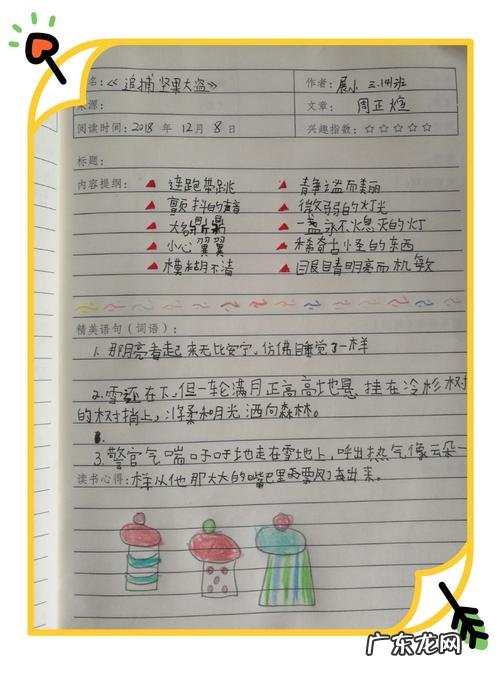 名:《追捕坚果大盗》 作者: 展小 三.14班
来源: 文章: 周正煊
阅读时间: 2018 年 12月 8日 兴趣指数: ☆☆☆☆☆
标题:
内容提纲: ▲ 连跑带跳 ▲ 静谧而美丽
▲ 颤抖的声音 ▲ 微弱的灯光
▲ 大名鼎鼎 ▲ 一盏永不熄灭的灯
▲ 小心翼翼 ▲ 稀奇古怪的东西
▲ 模糊不清 ▲ 眼睛明亮而机敏
精美语句(词语):
1. 那月亮看起来无比安宁,仿佛睡觉了一样
2. 雪还在下,但一轮满月正高高地悬挂在冷杉树
的树梢上,将柔和月光洒向森林。
3. 警官气喘吁吁地走在雪地上,呼出热气像云朵一
读书心得: 样从他那大大的嘴巴里
出来。
广东龙网